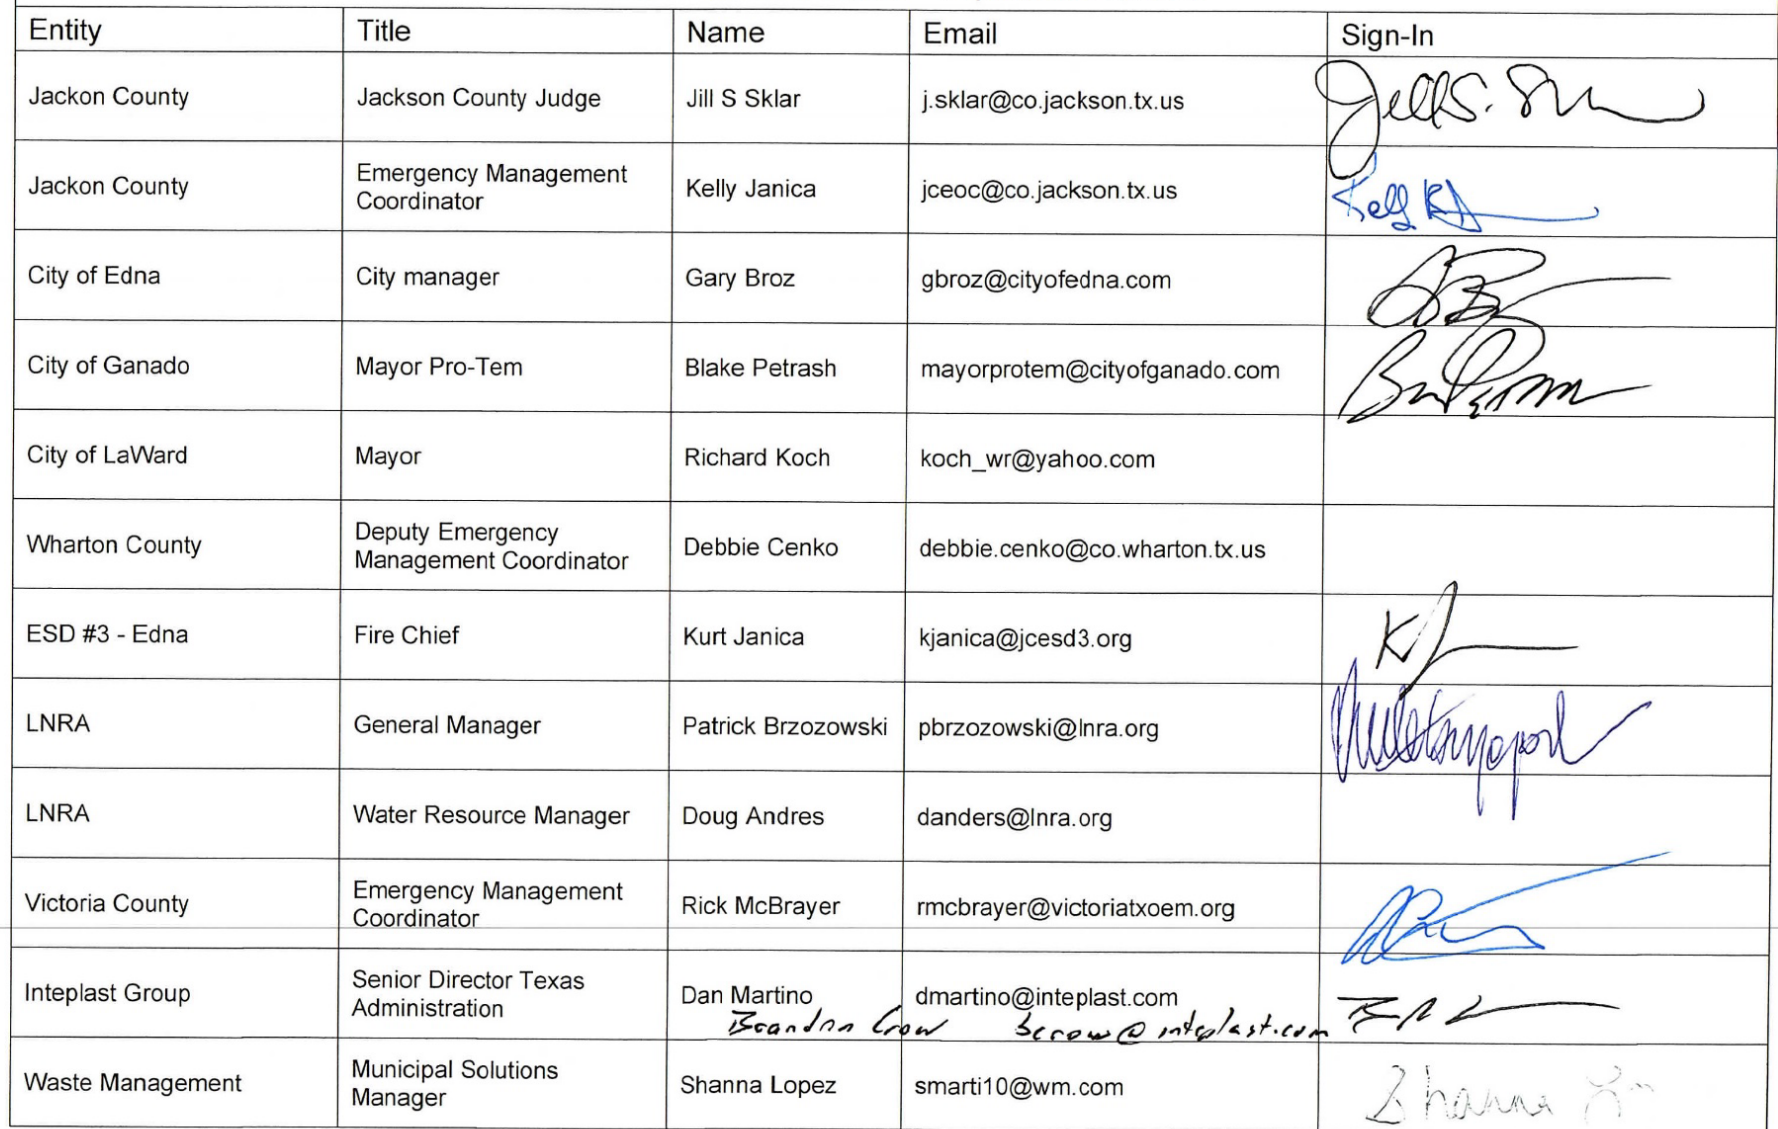 Entity Title Name Email Sign-In
Jackon County Jackson County Judge Jill S Sklar j.sklar@co.jackson.tx.us Jill S.
Jackon County Emergency Management Coordinator Kelly Janica jceoc@co.jackson.tx.us
City of Edna City manager Gary Broz gbroz@cityofedna.com
City of Ganado Mayor Pro-Tem Blake Petrash mayorprotem@cityofganado.com
City of LaWard Mayor Richard Koch koch_wr@yahoo.com
Wharton County Deputy Emergency Management Coordinator Debbie Cenko debbie.cenko@co.wharton.tx.us
ESD #3 - Edna Fire Chief Kurt Janica kjanica@jcesd3.org
LNRA General Manager Patrick Brzozowski pbrzozowski@lnra.org
LNRA Water Resource Manager Doug Andres danders@lnra.org
Victoria County Emergency Management Coordinator Rick McBrayer rmcbrayer@victoriatxoem.org
Inteplast Group Senior Director Texas Administration Dan Martino dmartino@inteplast.com
Brandon Crow bcrow@inteplast.com
Waste Management Municipal Solutions Manager Shanna Lopez smarti10@wm.com Shanna